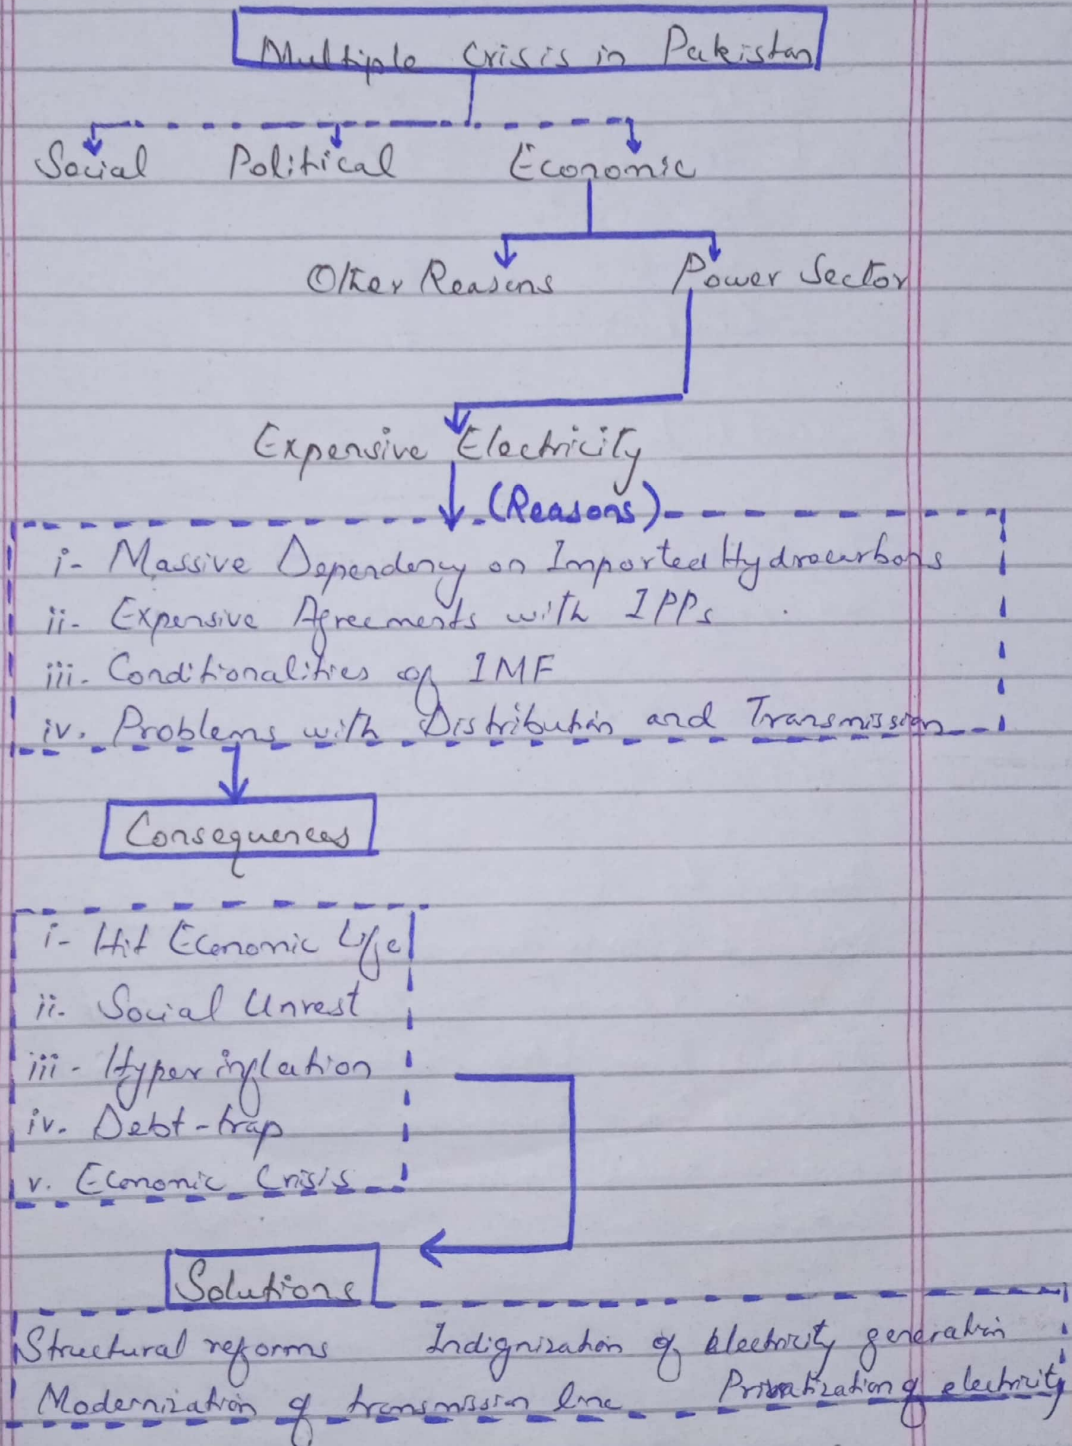 Multiple Crisis in Pakistan
Social Political Economic
Other Reasons Power Sector
Expensive Electricity
(Reasons)
i- Massive Dependency on Imported Hydrocarbons
ii- Expensive Agreements with IPPs
iii. Conditionalities of IMF
iv. Problems with Distribution and Transmission
Consequences
i- Hit Economic Life
ii. Social Unrest
iii- Hyper inflation
iv. Debt-trap
v. Economic Crisis
Solutions
Structural reforms Indignization of electricity generation
Modernization of transmission line Privatization of electricity